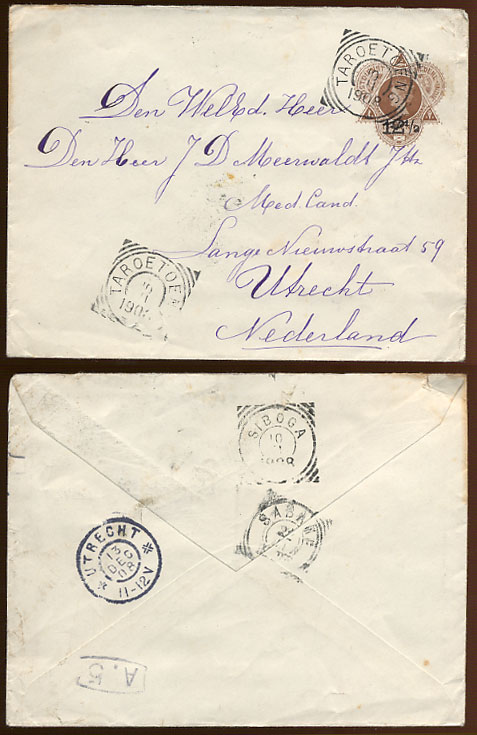 TAROETOEN
1908
12½
Den WelEd. Heer
Den Heer J D Meerwaldt JHz
Med. Cand.
Lange Nieuwstraat 59
Utrecht
Nederland
TAROETOEN
SIBOGA
10
1908
SABANG
UTRECHT
13
DEC
08
11-12V
A.5